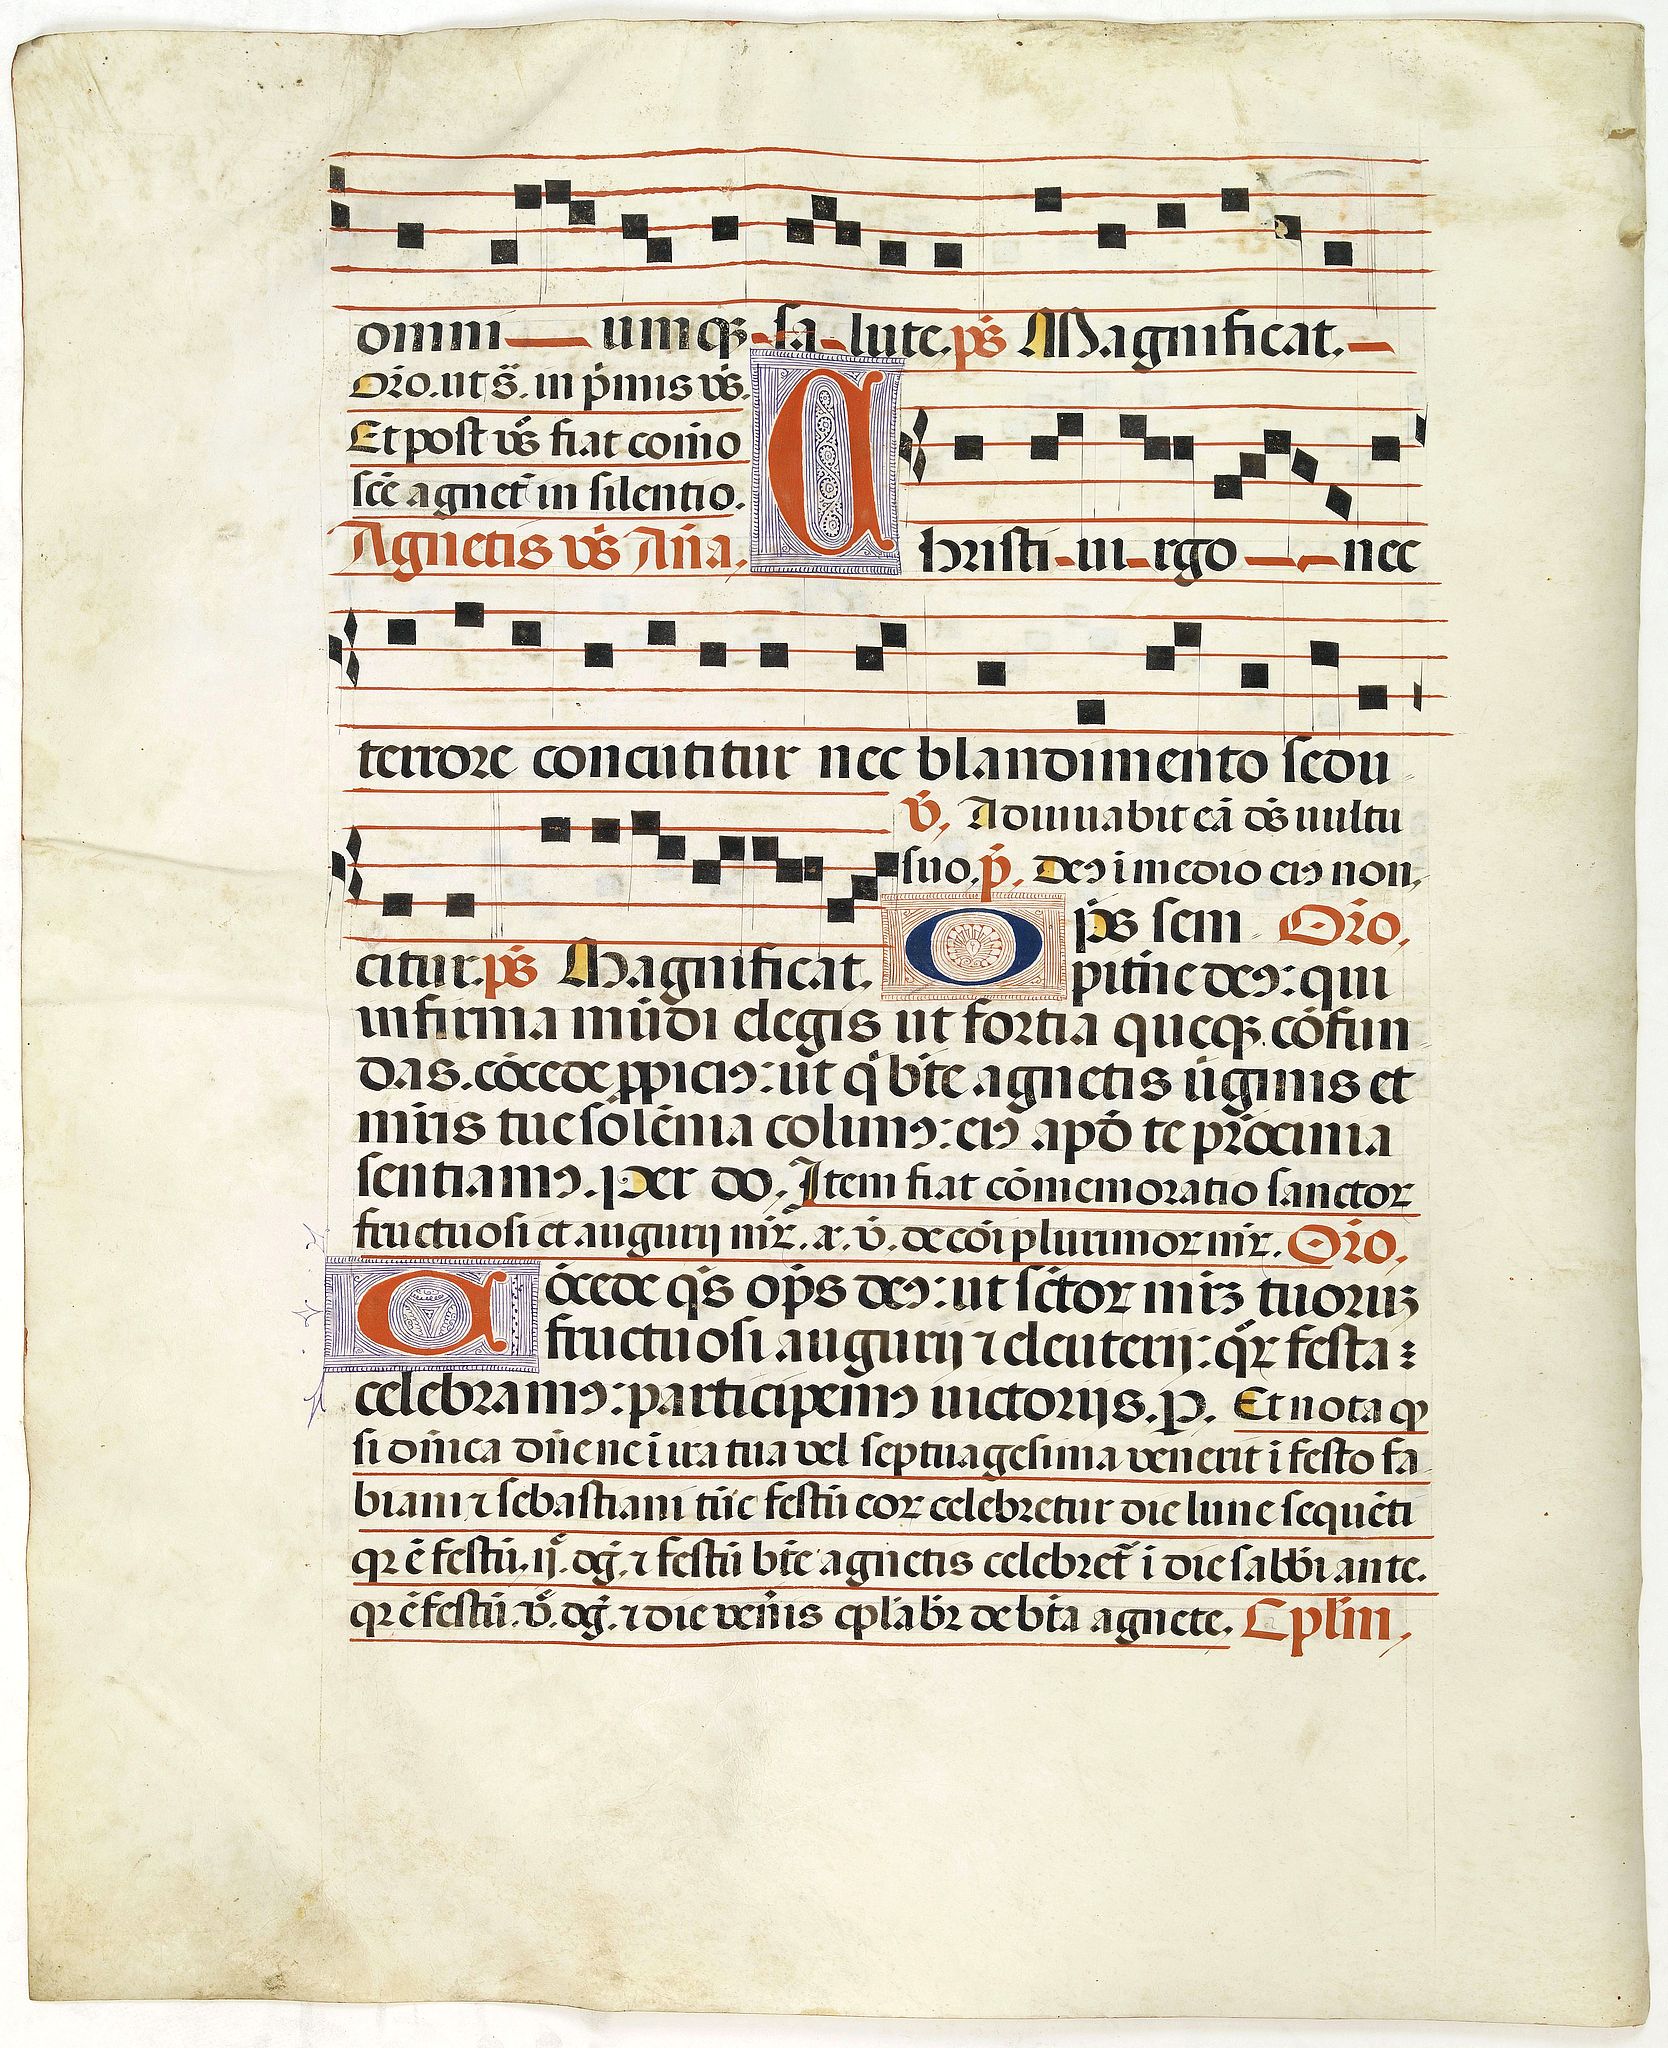 omni umq₃ sa lute. p̄s Magnificat.
Or̄o. ut s̄. in p̄mis vs̄.
Et post vs̄ fiat com̄o
sc̄e agnet̄ in silentio.
Agnetis vs̄ An̄a,
Christi uirgo nec
terrore concutitur nec blandimento sedu
citur. p̄s Magnificat.
v̄, Adiuuabit eā ds̄ uultu
suo. p̄. Deꝯ ī medio eiꝯ non,
Op̄s sem Or̄o,
pit̄ne deꝯ: qui
infirma mūdi elegis ut fortia queq₃ cōfun
das. cōcede ꝓpiciꝯ: ut q̄ bt̄e agnetis ūginis et
mr̄is tue solēnia colimꝯ: eiꝯ apd̄ te pr̄ocinia
sentiamꝯ. Per do. Item fiat cōmemoratio sanctoꝝ
fructuosi et augurij mr̄ꝝ. a. v̄. de cōi plurimoꝝ mr̄ꝝ. Or̄o,
Cōcede qs̄ op̄s deꝯ: ut sc̄toꝝ mr̄₃ tuoru₃
fructuosi augurij ⁊ eleuterij: qꝝ̄ festa
celebramꝯ: participemꝯ uictorijs. P. Et nota ꝙ
si dn̄ica dn̄e ne ī ira tua vel septuagesima venerit ī festo fa
biani ⁊ sebastiani tūc festū eoꝝ celebretur die lune sequēti
qꝛ ē festū. ij. dḡ. ⁊ festū bt̄e agnetis celebret̄ ī die sabb̄i ante.
qꝛ ē festū. v̄. dḡ. ⁊ die ven̄is cp̄labr̄ de bt̄a agnete. Cpl̄m,